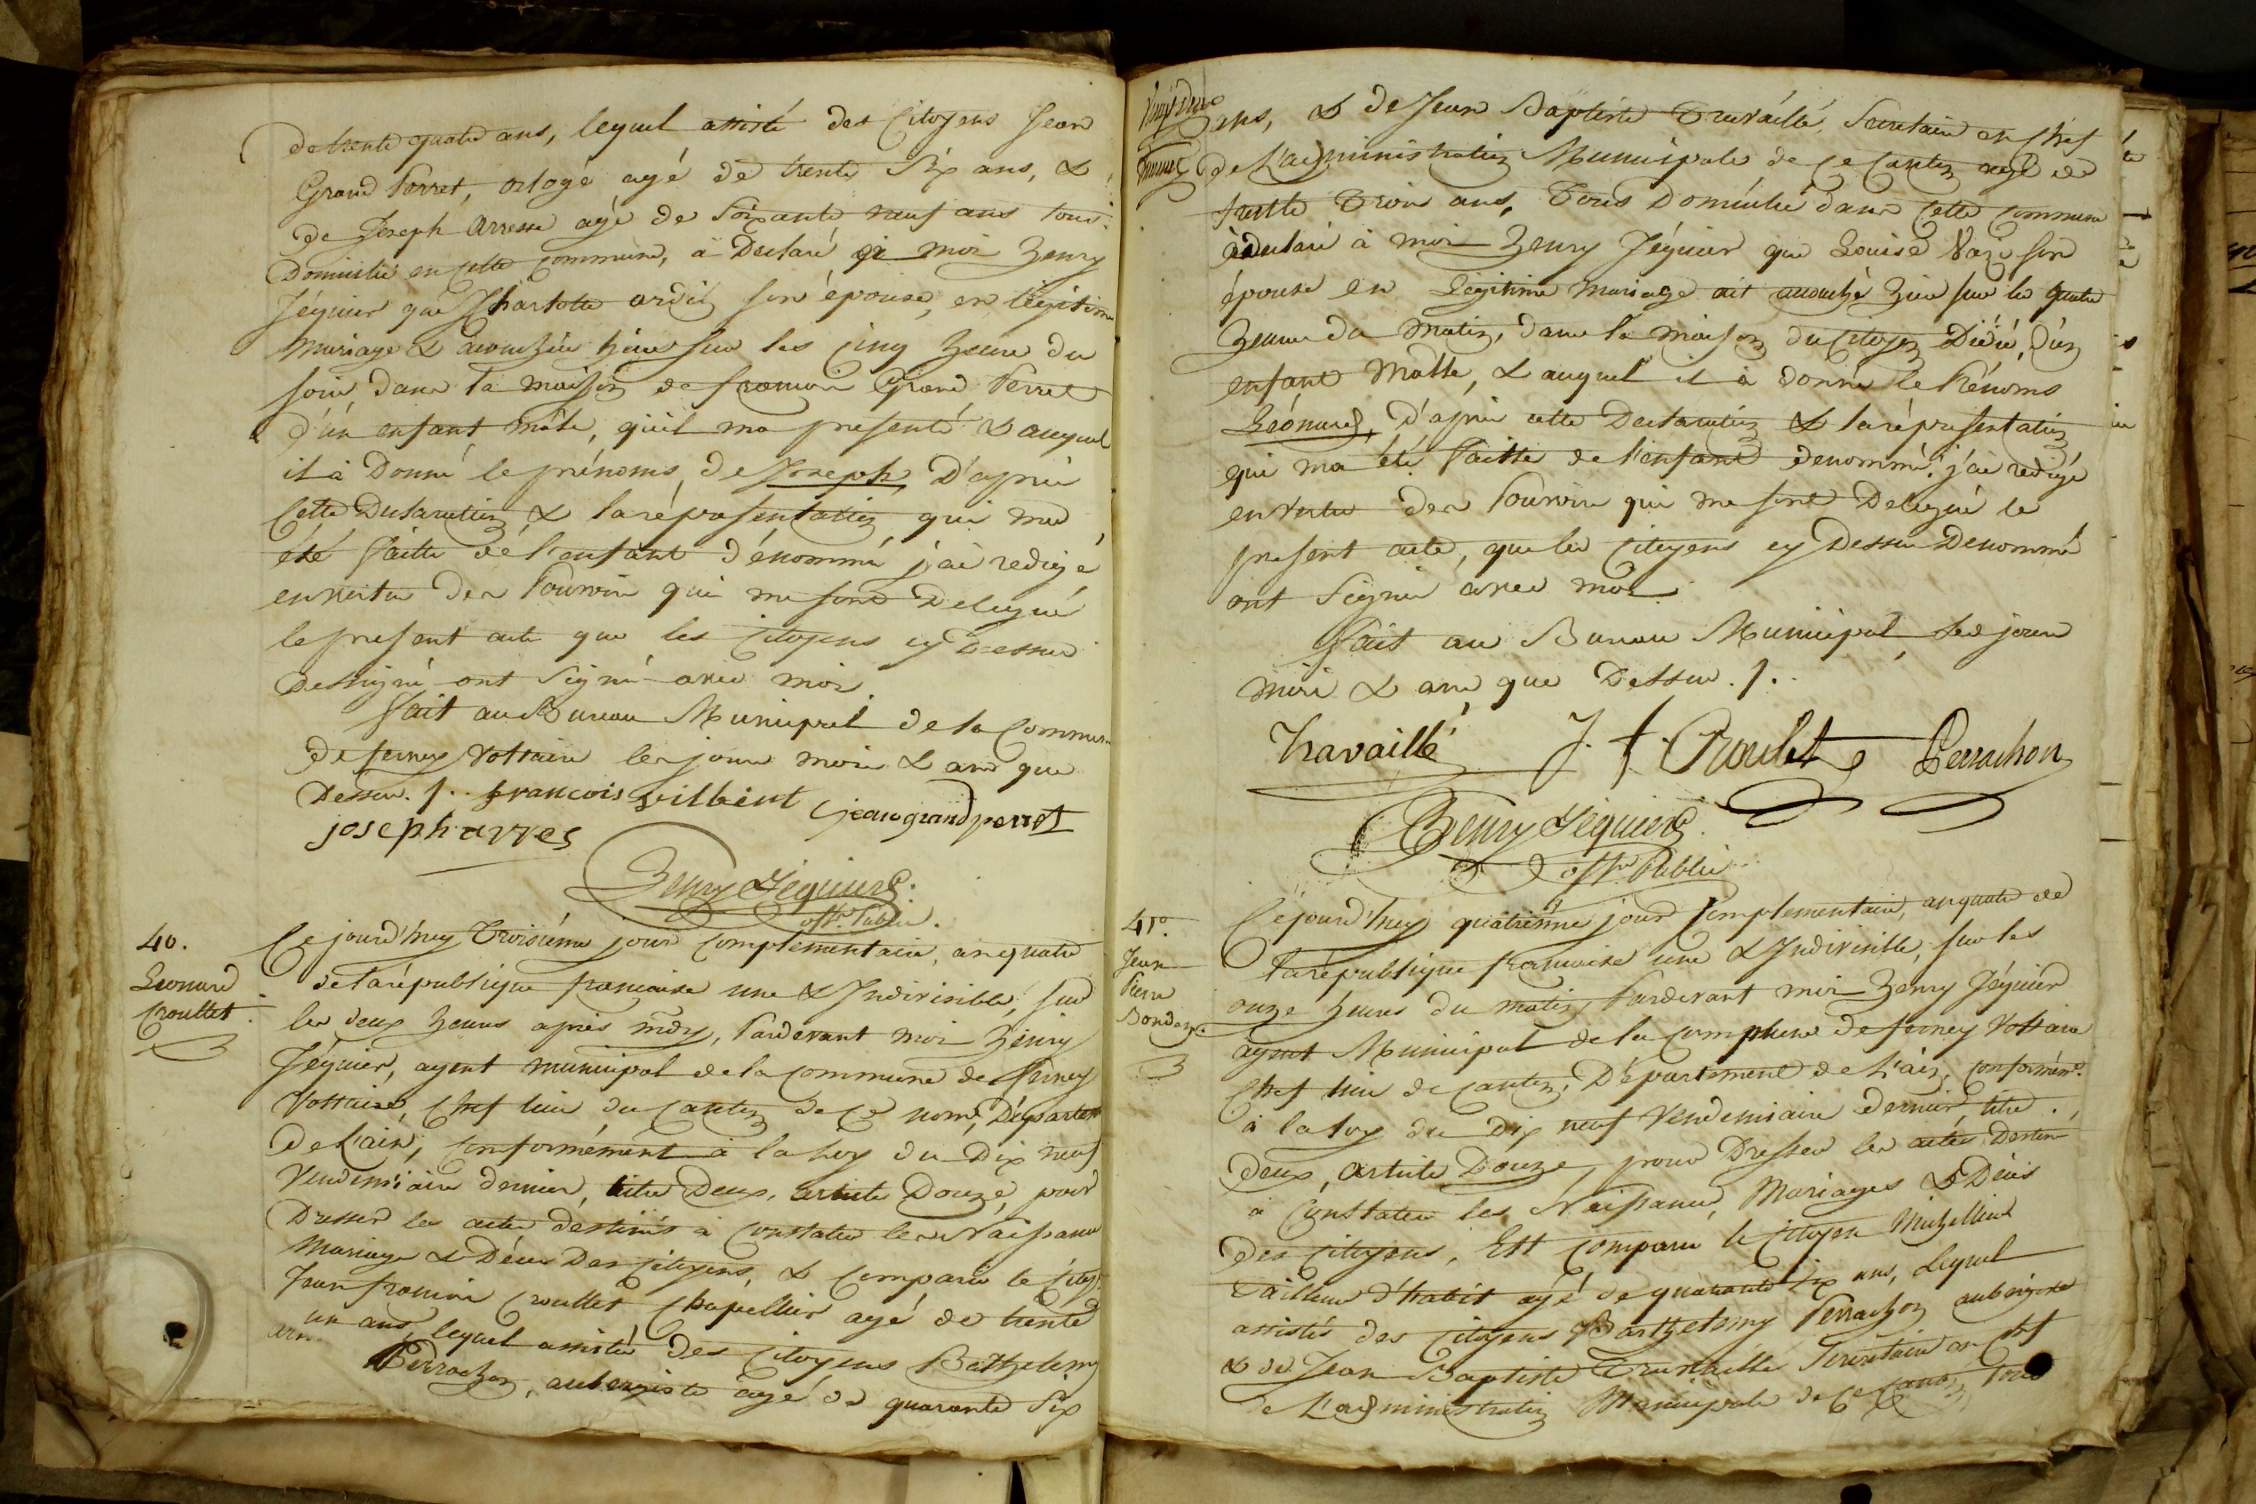 de trente quatre ans, lequel assisté des Citoyens Jean
Grand Perret, orlogé agé de trente Six ans, &
de Joseph arresse agé de Soixante neuf ans tous
Domicilié en cette commune, à Declaré à moi Henry
Jéquier que Charlotte son épouse, en légitime
Mariage & accouchée hier sur les Cinq heure du
soir, dans la maison de francois Grand Perret
d'un enfant mâle, qu'il ma presenté & auquel
il à Donné le prénoms de Joseph D'après
Cette Declaration & la réprésentation qui ma
été faitte dé l'enfant dénommé j'ai redigé
en vertu des Pouvoir qui me sont Delegué
le present acte que les Citoyens cy Dessus
Dessigné ont Signé avec moi
fait au Bureau Municipal de la Commune
de ferney Voltaire les jour mois & ans que
Dessus. /. françois vilbert jean grand perret
joseph arres
Henry Jéquier
offr. Public.
40.
Leonard
Croullet
Ce jourd'huy Troisiéme jour complémentaire, an quatre
de la république francaise une & Indivisible, sur
les deux heures après midy, Pardevant moi Henry
Jéquier, agent municipal de la commune de ferney
Voltaire, Chef lieu du Canton de ce nom, Départemt
De L'ain, conformément à la Loy du Dix neuf
Vendemiaire dernier, titre Deux, article Douze, pour
Dresser les actes déstinés à constater les Naissance
Mariage & Décès Des Citoyens, & comparu le Citoy.
Jean francois Croullet Chapellier agé de trente
un ans, lequel assisté des Citoyens Bathelemy
Perrachon, aubergiste agé de quarante Six
ans, & de Jean Baptiste Travaillé, Secretaire en Chef
de L'administration Municipale de ce Canton agé de
trente Trois ans, Tous Domicilié dans cette commune
à declaré à moi Henry Jéquier que Louise son
épouse en Légitime Mariage ait accouché hier sur les quatre
heure du Matin, dans la maison du Citoyen Dide, d'un
enfant Malle, & auquel il à donné le Prénoms
Léonard, D'après cette Declaration & la réprésentation
qui ma été faitte de l'enfant denommé, j'ai redigé
en vertu des Pouvoir qui me sont Delegué le
present acte, que les Citoyens cy Dessus Denommé
ont Signé avec moi
fait au Bureau Municipal, les jour
mois & ans que Dessus. /.
Travaillé J. f. Croulet Perrachon
Henry Jéquier
offr. Public
41.
Jean
Pierre
Ce jourd'huy quatriéme jour Complementaire, an quatre de
la république francaise une & Indivisible, sur les
onze heures du matin, Pardevant moi Henry Jéquier
agent Municipal de la commune de ferney Voltaire
Chef lieu de Canton, Département de L'ain, conformémt.
à la Loy du Dix neuf Vendemiaire dernier, titre
Deux, article Douze, pour Dresser les actes Destiné
à Constater les Naissance, Mariages & Décès
Des Citoyens, Est comparu le Citoyen
Tailleur d'habit agé de quarante Six ans, Lequel
assistés des Citoyens Barthelemy Perrachon aubergiste
& de Jean Baptiste Travaillé Secretaire en Chef
de L'administration Municipale de ce Canton, tous